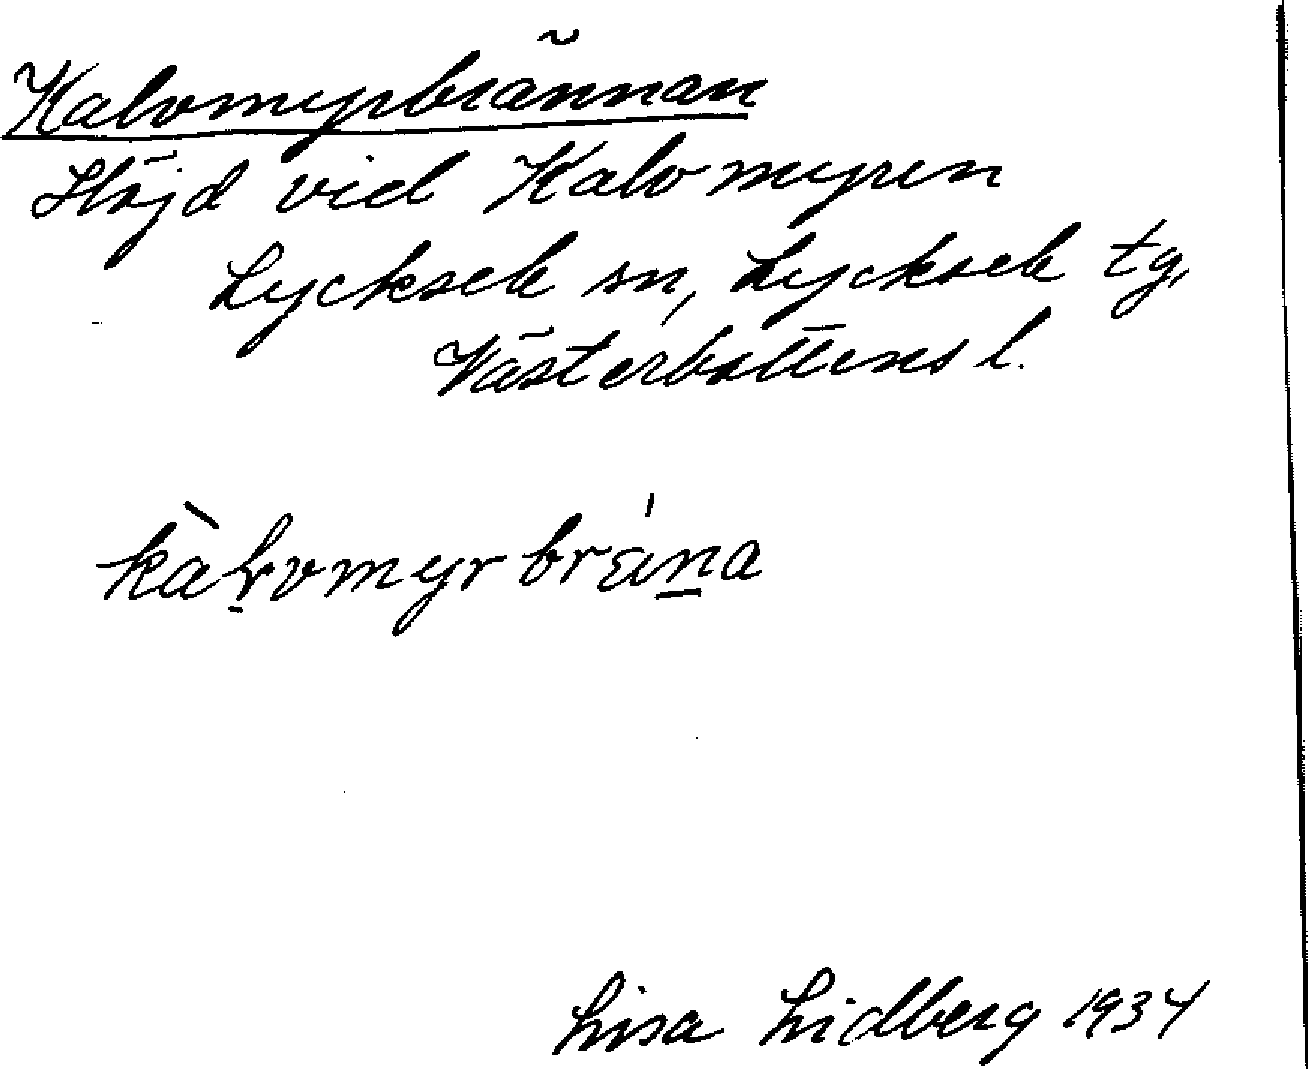 Kalvmyrbrännan
Höjd vid Kalvmyren
Lycksele sn, Lycksele tg,
Västerbottens l.
kàḷvmyrbrána
Lisa Lidberg 1934